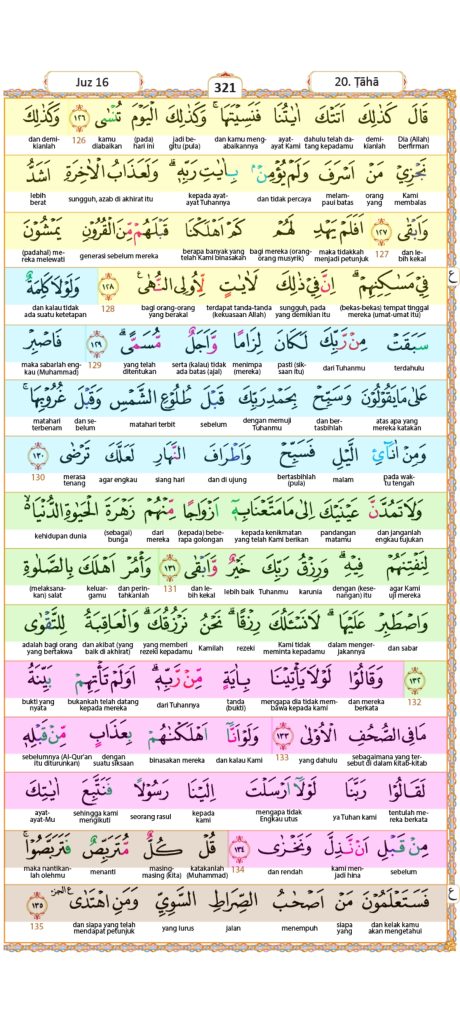 Juz 16
321
20. Ṭāhā
قَالَ كَذٰلِكَ اَتَتْكَ اٰيٰتُنَا فَنَسِيْتَهَاۚ وَكَذٰلِكَ الْيَوْمَ تُنْسٰى ١٢٦ وَكَذٰلِكَ
Dia (Allah) berfirman demi-kianlah dahulu telah da-tang kepadamu ayat-ayat Kami dan kamu meng-abaikannya jadi be-gitu (pula) (pada) hari ini kamu diabaikan 126 dan demi-kianlah
نَجْزِيْ مَنْ اَسْرَفَ وَلَمْ يُؤْمِنْۢ بِاٰيٰتِ رَبِّهٖۗ وَلَعَذَابُ الْاٰخِرَةِ اَشَدُّ
Kami membalas orang yang melam-paui batas dan tidak percaya kepada ayat-ayat Tuhannya sungguh, azab di akhirat itu lebih berat
وَاَبْقٰى ١٢٧ اَفَلَمْ يَهْدِ لَهُمْ كَمْ اَهْلَكْنَا قَبْلَهُمْ مِّنَ الْقُرُوْنِ يَمْشُوْنَ
dan le-bih kekal 127 maka tidakkah menjadi petunjuk bagi mereka (orang-orang musyrik) berapa banyak yang telah Kami binasakan generasi sebelum mereka (padahal) me-reka melewati
فِيْ مَسٰكِنِهِمْۗ اِنَّ فِيْ ذٰلِكَ لَاٰيٰتٍ لِّاُولِى النُّهٰى ١٢٨ وَلَوْلَا كَلِمَةٌ
(bekas-bekas) tempat tinggal mereka (umat-umat itu) sungguh, pada yang demikian itu terdapat tanda-tanda (kekuasaan Allah) bagi orang-orang yang berakal 128 dan kalau tidak ada suatu ketetapan
سَبَقَتْ مِنْ رَّبِّكَ لَكَانَ لِزَامًا وَّاَجَلٌ مُّسَمًّىۗ ١٢٩ فَاصْبِرْ
terdahulu dari Tuhanmu pasti (sik-saan itu) menimpa (mereka) serta (kalau) tidak ada batas (ajal) yang telah ditentukan 129 maka sabarlah eng-kau (Muhammad)
عَلٰى مَا يَقُوْلُوْنَ وَسَبِّحْ بِحَمْدِ رَبِّكَ قَبْلَ طُلُوْعِ الشَّمْسِ وَقَبْلَ غُرُوْبِهَاۚ
atas apa yang mereka katakan dan ber-tasbihlah dengan memuji Tuhanmu sebelum matahari terbit dan se-belum matahari terbenam
وَمِنْ اٰنَاۤئِ الَّيْلِ فَسَبِّحْ وَاَطْرَافَ النَّهَارِ لَعَلَّكَ تَرْضٰى ١٣٠
pada wak-tu tengah malam bertasbihlah (pula) dan di ujung siang hari agar engkau merasa tenang 130
وَلَا تَمُدَّنَّ عَيْنَيْكَ اِلٰى مَا مَتَّعْنَا بِهٖٓ اَزْوَاجًا مِّنْهُمْ زَهْرَةَ الْحَيٰوةِ الدُّنْيَا
dan janganlah engkau tujukan pandangan matamu kepada kenikmatan yang telah Kami berikan (kepada) bebe-rapa golongan dari mereka (sebagai) bunga kehidupan dunia
لِنَفْتِنَهُمْ فِيْهِۗ وَرِزْقُ رَبِّكَ خَيْرٌ وَّاَبْقٰى ١٣١ وَأْمُرْ اَهْلَكَ بِالصَّلٰوةِ
agar Kami uji mereka dengan (kese-nangan) itu karunia Tuhanmu lebih baik dan le-bih kekal 131 dan perin-tahkanlah keluar-gamu (melaksana-kan) salat
وَاصْطَبِرْ عَلَيْهَاۗ لَا نَسْـَٔلُكَ رِزْقًاۗ نَحْنُ نَرْزُقُكَۗ وَالْعَاقِبَةُ لِلتَّقْوٰى
dan sabar dalam menger-jakannya Kami tidak meminta kepadamu rezeki Kamilah yang memberi rezeki kepadamu dan akibat (yang baik di akhirat) adalah bagi orang yang bertakwa
١٣٢ وَقَالُوْا لَوْلَا يَأْتِيْنَا بِاٰيَةٍ مِّنْ رَّبِّهٖۗ اَوَلَمْ تَأْتِهِمْ بَيِّنَةُ
132 dan mereka berkata mengapa dia tidak mem-bawa kepada kami tanda (bukti) dari Tuhannya bukankah telah datang kepada mereka bukti yang nyata
مَا فِى الصُّحُفِ الْاُوْلٰى ١٣٣ وَلَوْ اَنَّآ اَهْلَكْنٰهُمْ بِعَذَابٍ مِّنْ قَبْلِهٖ
sebagaimana yang ter-sebut di dalam kitab-kitab yang dahulu 133 dan kalau Kami binasakan mereka dengan suatu siksaan sebelumnya (Al-Qur'an itu diturunkan)
لَقَالُوْا رَبَّنَا لَوْلَآ اَرْسَلْتَ اِلَيْنَا رَسُوْلًا فَنَتَّبِعَ اٰيٰتِكَ
tentulah me-reka berkata ya Tuhan kami mengapa tidak Engkau utus kepada kami seorang rasul sehingga kami mengikuti ayat-ayat-Mu
مِنْ قَبْلِ اَنْ نَّذِلَّ وَنَخْزٰى ١٣٤ قُلْ كُلٌّ مُّتَرَبِّصٌ فَتَرَبَّصُوْاۚ
sebelum kami men-jadi hina dan rendah 134 katakanlah (Muhammad) masing-masing (kita) menanti maka nantikan-lah olehmu
فَسَتَعْلَمُوْنَ مَنْ اَصْحٰبُ الصِّرَاطِ السَّوِيِّ وَمَنِ اهْتَدٰى ١٣٥
dan kelak kamu akan mengetahui siapa yang menempuh jalan yang lurus dan siapa yang telah mendapat petunjuk 135